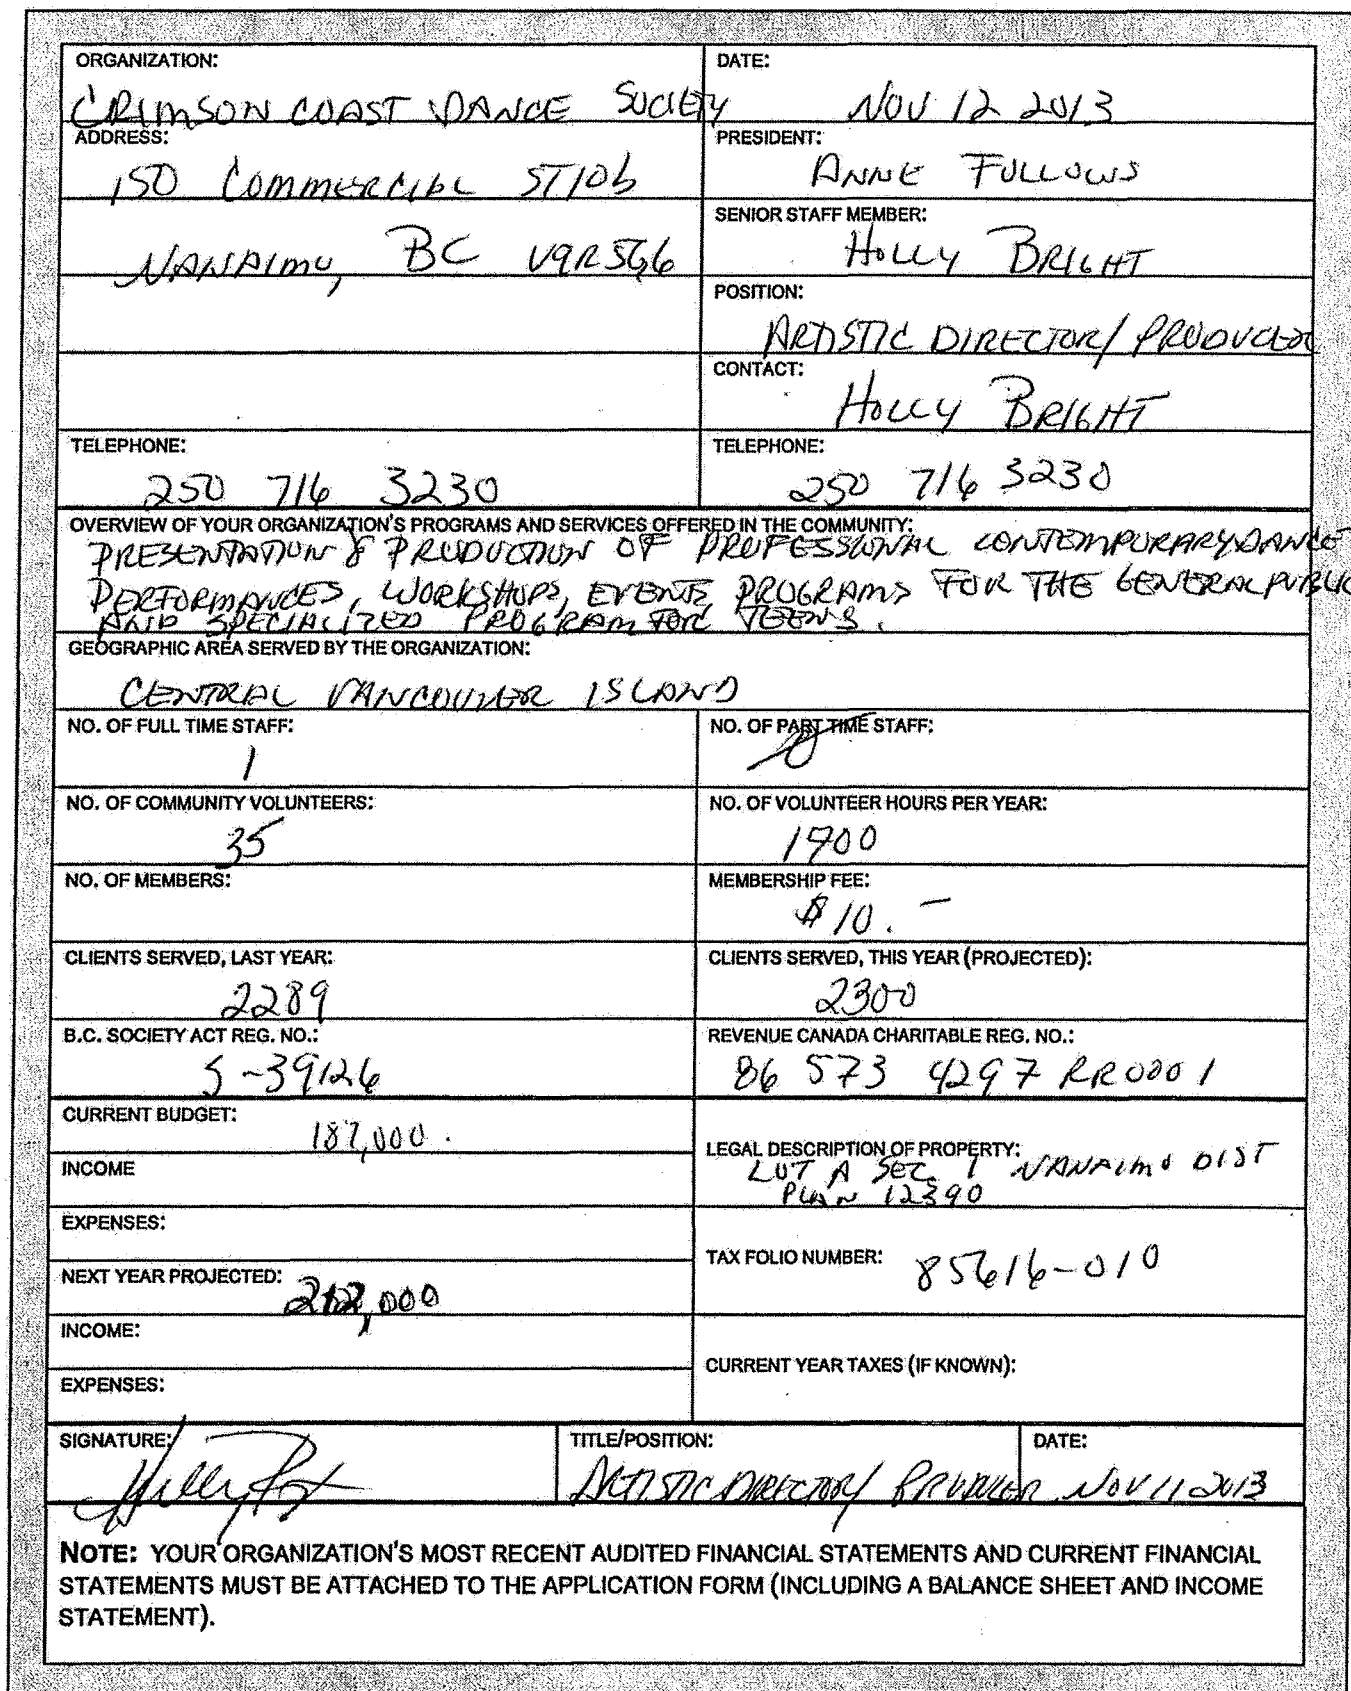 ORGANIZATION:
CRIMSON COAST DANCE SOCIETY
DATE:
NOV 12 2013
ADDRESS:
150 COMMERCIAL ST106
NANAIMO, BC V9R5G6
PRESIDENT:
ANNE FOLLOWS
SENIOR STAFF MEMBER:
HOLLY BRIGHT
POSITION:
ARTISTIC DIRECTOR/ PRODUCER
CONTACT:
HOLLY BRIGHT
TELEPHONE:
250 716 3230
TELEPHONE:
250 716 3230
OVERVIEW OF YOUR ORGANIZATION'S PROGRAMS AND SERVICES OFFERED IN THE COMMUNITY:
PRESENTATION & PRODUCTION OF PROFESSIONAL CONTEMPORARY DANCE
PERFORMANCES, WORKSHOPS, EVENTS, PROGRAMS FOR THE GENERAL PUBLIC
AND SPECIALIZED PROGRAM FOR TEENS.
GEOGRAPHIC AREA SERVED BY THE ORGANIZATION:
CENTRAL VANCOUVER ISLAND
NO. OF FULL TIME STAFF:
1
NO. OF PART TIME STAFF:
0
NO. OF COMMUNITY VOLUNTEERS:
35
NO. OF VOLUNTEER HOURS PER YEAR:
1900
NO. OF MEMBERS:
MEMBERSHIP FEE:
$10.-
CLIENTS SERVED, LAST YEAR:
2289
CLIENTS SERVED, THIS YEAR (PROJECTED):
2300
B.C. SOCIETY ACT REG. NO.:
S-39126
REVENUE CANADA CHARITABLE REG. NO.:
86 573 4297 RR0001
CURRENT BUDGET:
187,000.
INCOME
EXPENSES:
LEGAL DESCRIPTION OF PROPERTY:
LOT A SEC. 1 NANAIMO DIST
PLAN 12390
NEXT YEAR PROJECTED:
212,000
TAX FOLIO NUMBER: 85616-010
INCOME:
EXPENSES:
CURRENT YEAR TAXES (IF KNOWN):
SIGNATURE:
TITLE/POSITION:
ARTISTIC DIRECTOR/ PRODUCER
DATE:
NOV 11 2013
NOTE: YOUR ORGANIZATION'S MOST RECENT AUDITED FINANCIAL STATEMENTS AND CURRENT FINANCIAL
STATEMENTS MUST BE ATTACHED TO THE APPLICATION FORM (INCLUDING A BALANCE SHEET AND INCOME
STATEMENT).